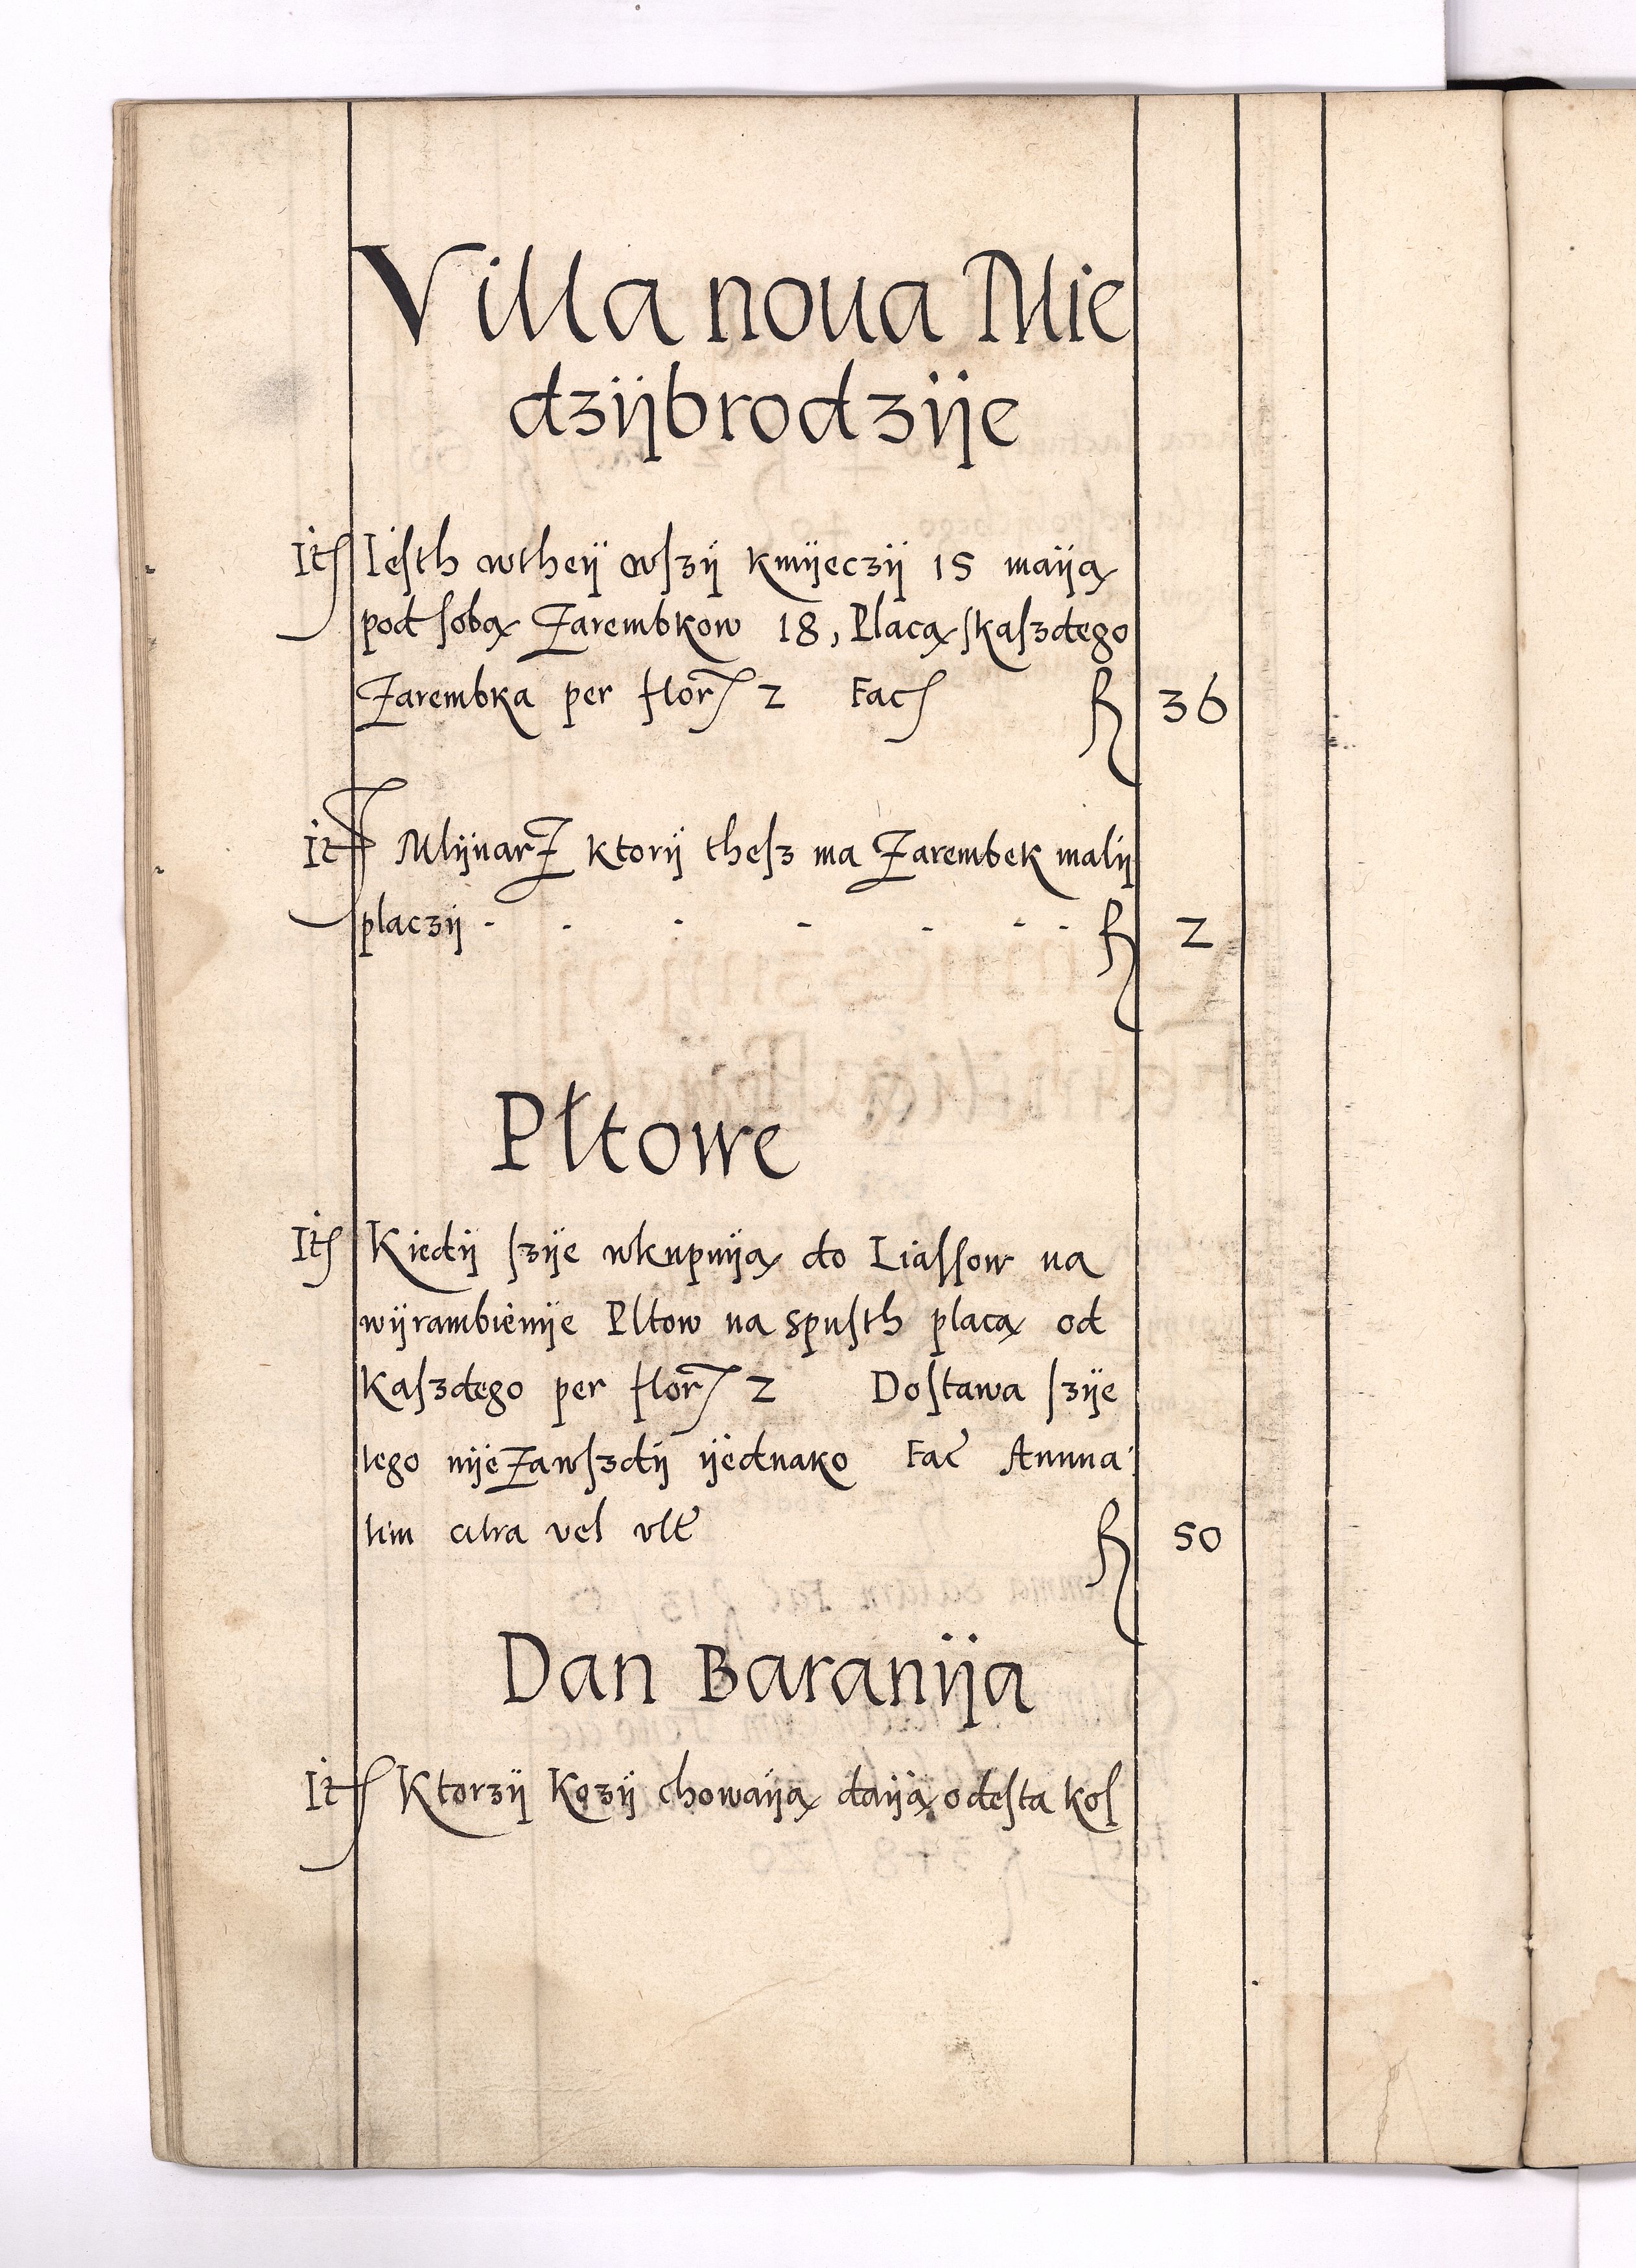 Villa noua Mie
dzijbrodzije
It Iesth wtheij wszij kmijeczij 15 maiją
pod sobą Zarembkow 18, Placą skaszdego
Zarembka per flor 2 Fac fl 36
It MlijnarZ ktorij thesz ma Zarembek malij
placzij - - - - - - - fl 2
Płtowe
It Kiedij szije wkupniją do Liassow na
wijrambienije Pltow na spusth placą od
kaszdego per flor 2 Dostawa szije
tego nije Zawszdij ijednako Fac Annua
tim citra vel vlt fl 50
Dan Baranija
It Ktorzij Kozij chowaiją daiją odesta kos